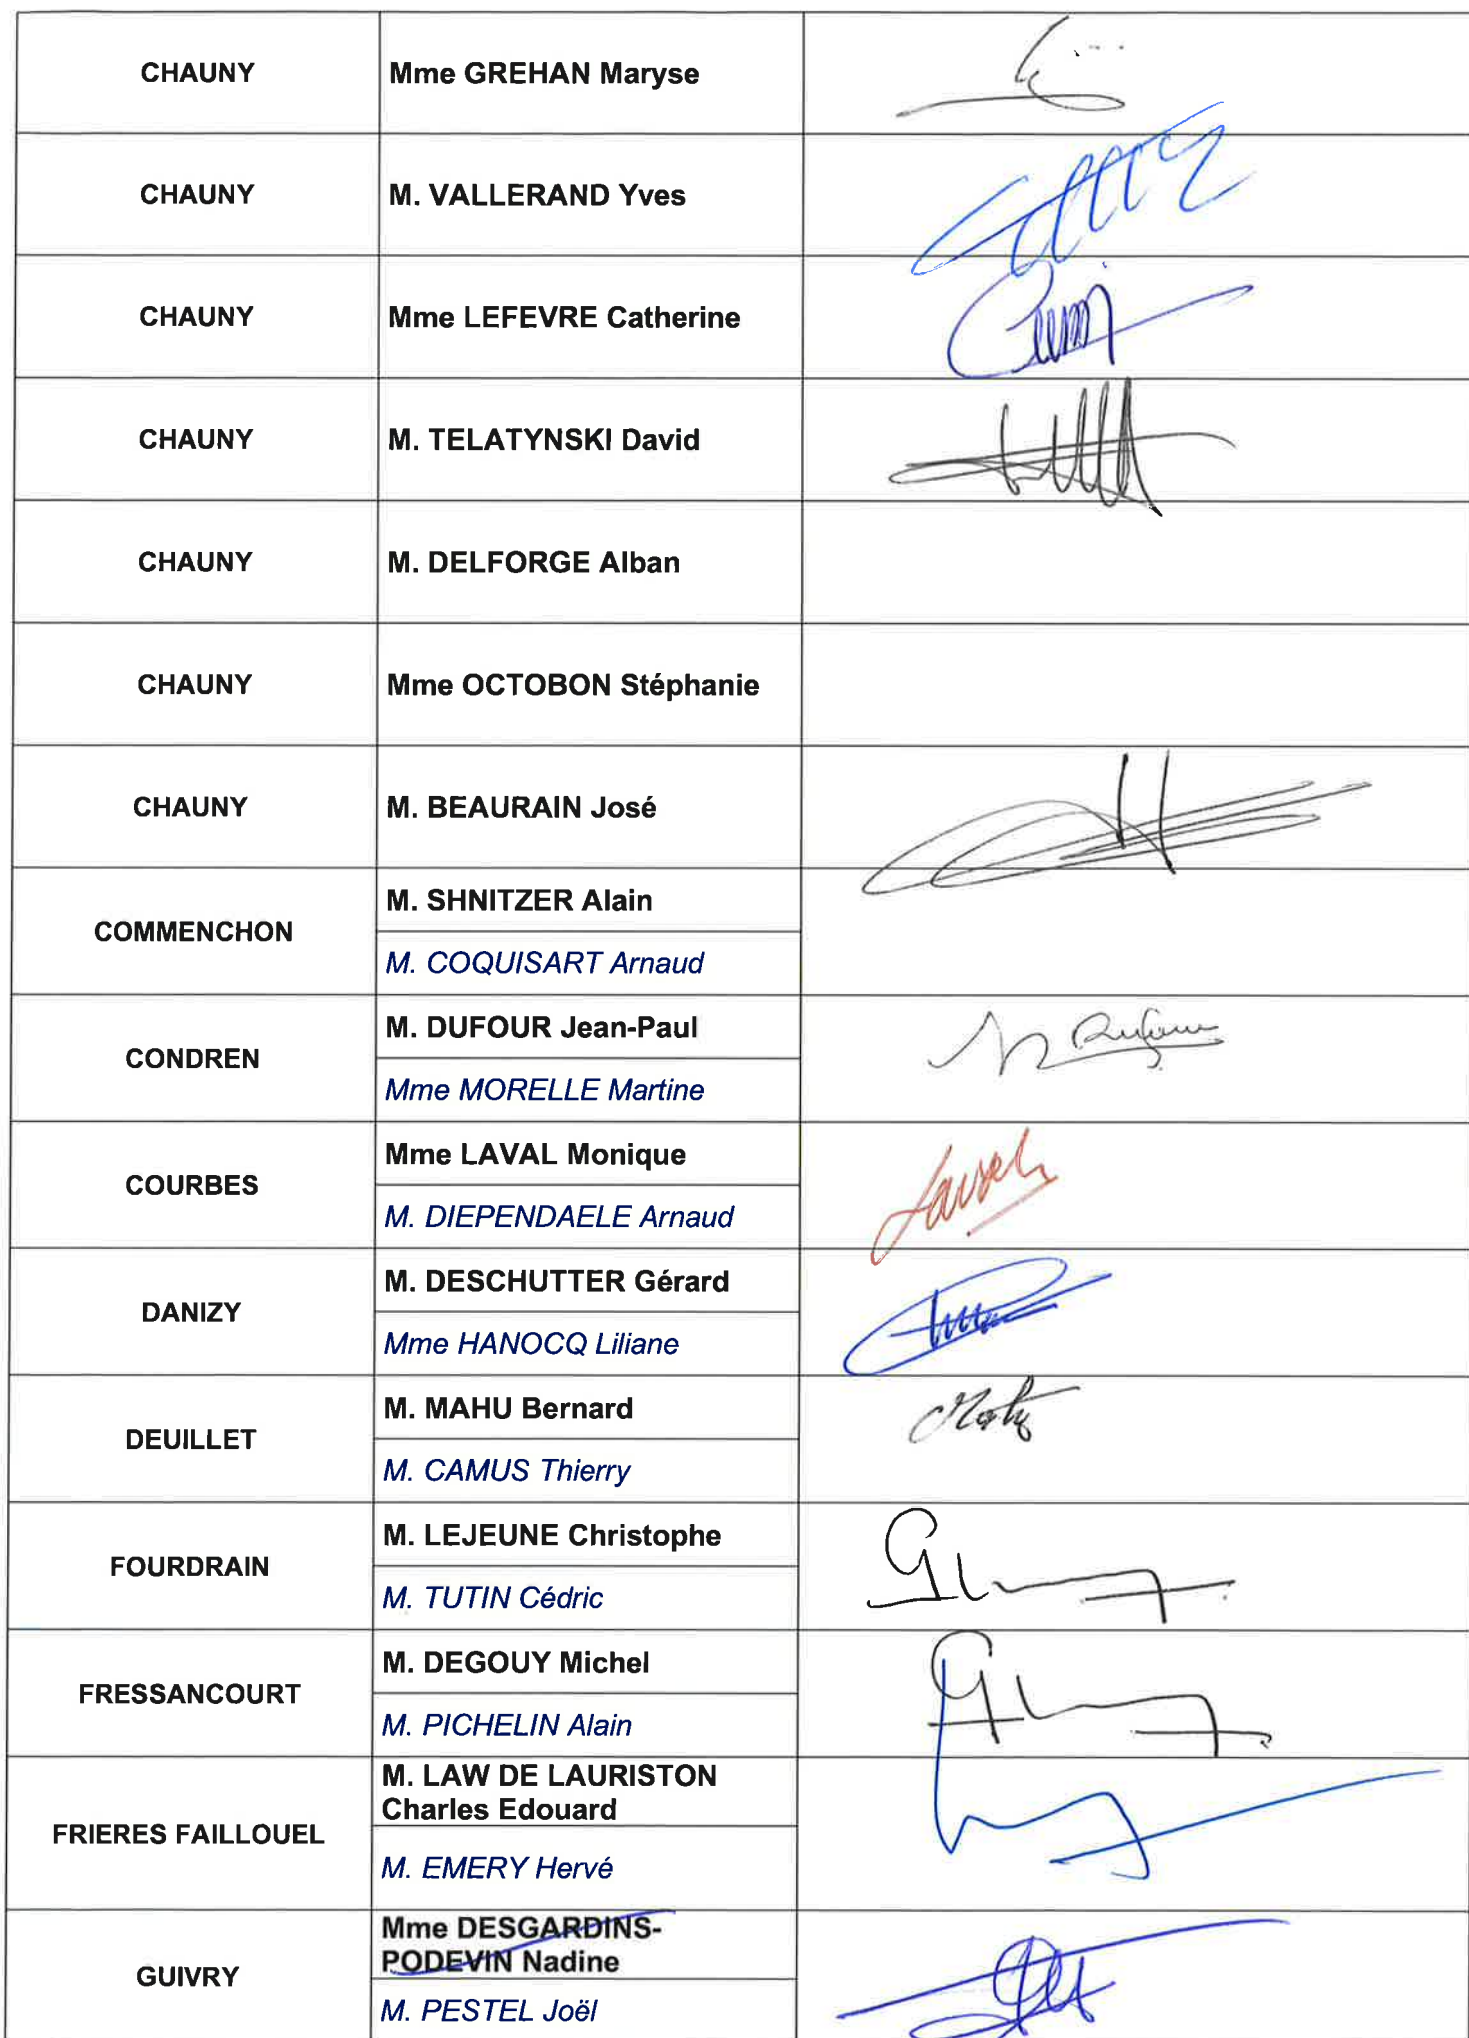 CHAUNY
Mme GREHAN Maryse
CHAUNY
M. VALLERAND Yves
CHAUNY
Mme LEFEVRE Catherine
CHAUNY
M. TELATYNSKI David
CHAUNY
M. DELFORGE Alban
CHAUNY
Mme OCTOBON Stéphanie
CHAUNY
M. BEAURAIN José
COMMENCHON
M. SHNITZER Alain
M. COQUISART Arnaud
CONDREN
M. DUFOUR Jean-Paul
Mme MORELLE Martine
Dufour
COURBES
Mme LAVAL Monique
M. DIEPENDAELE Arnaud
Laval
DANIZY
M. DESCHUTTER Gérard
Mme HANOCQ Liliane
DEUILLET
M. MAHU Bernard
M. CAMUS Thierry
Mahu
FOURDRAIN
M. LEJEUNE Christophe
M. TUTIN Cédric
FRESSANCOURT
M. DEGOUY Michel
M. PICHELIN Alain
FRIERES FAILLOUEL
M. LAW DE LAURISTON
Charles Edouard
M. EMERY Hervé
GUIVRY
Mme DESGARDINS-
PODEVIN Nadine
M. PESTEL Joël